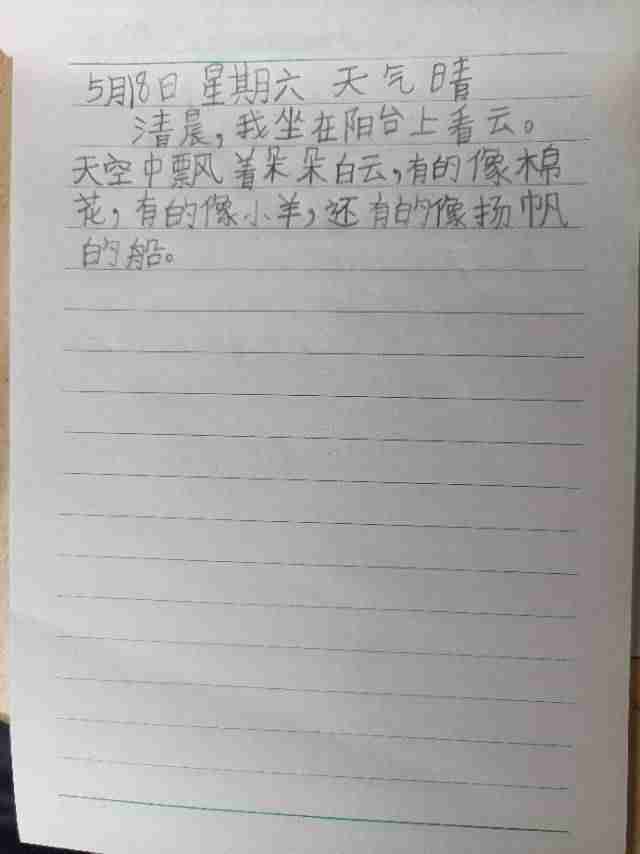 5月18日 星期六 天气晴
清晨，我坐在阳台上看云。
天空中飘着朵朵白云，有的像棉
花，有的像小羊，还有的像扬帆
的船。